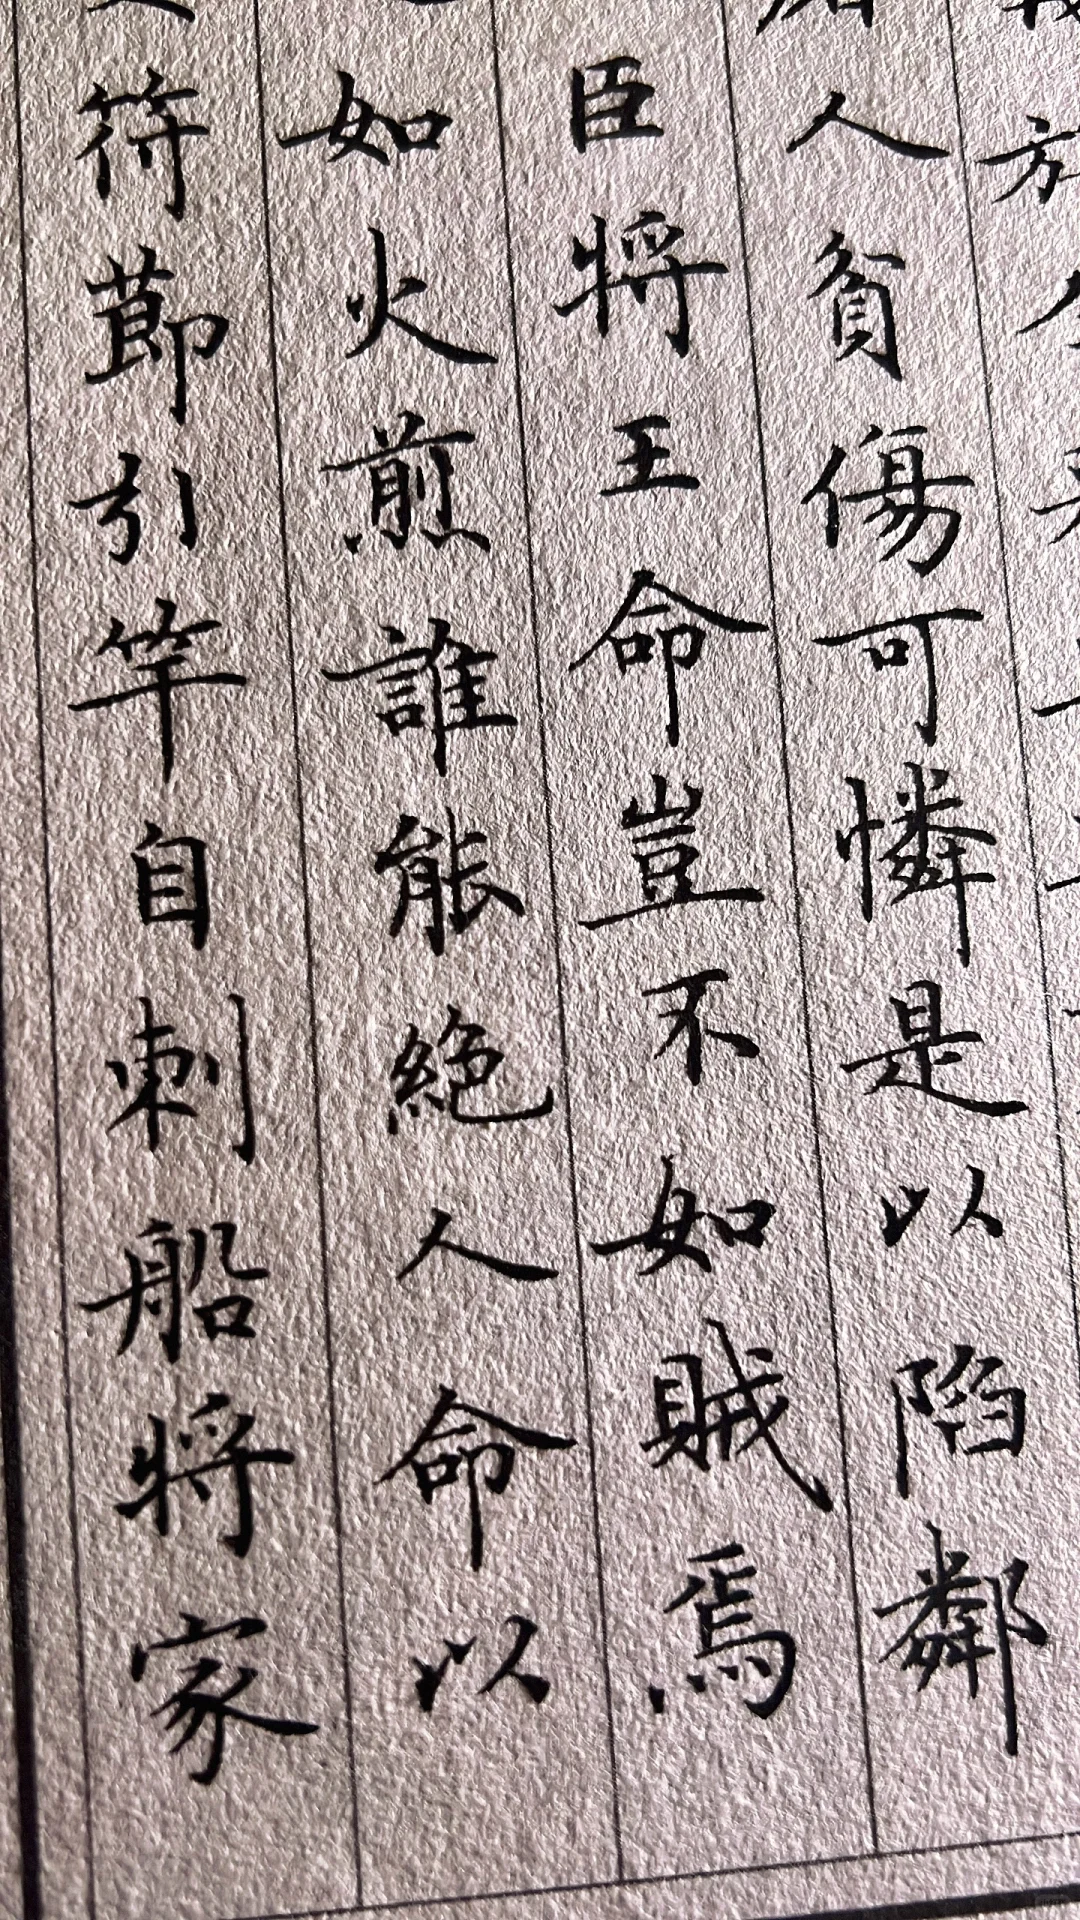 人貧傷可憐是以陷鄰
臣將王命豈不如賊焉
如火煎誰能絕人命以
符節引竿自刺船將家